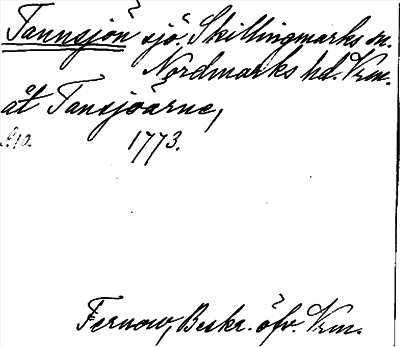 Tannsjön sjö. Skillingmarks sn.
Nordmarks hd. Vrm.
åt Tansjöarne,
S. 10. 1773.
Fernow, Beskr. öfv. Vrm.